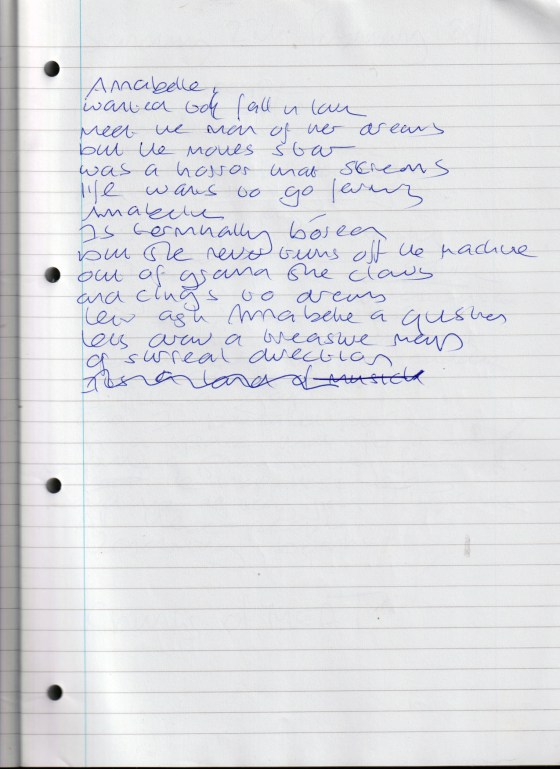 Annabelle,
wanted to fall in love
meet the man of her dreams
but the movies star
was a horror that screams
life wants to go
Annabelle
Is terminally bored
but she never turns off the machine
out of she claws
and clings to dreams
lets ask Annabelle a question
lets draw a treasure map
of surreal direction
Its a land of